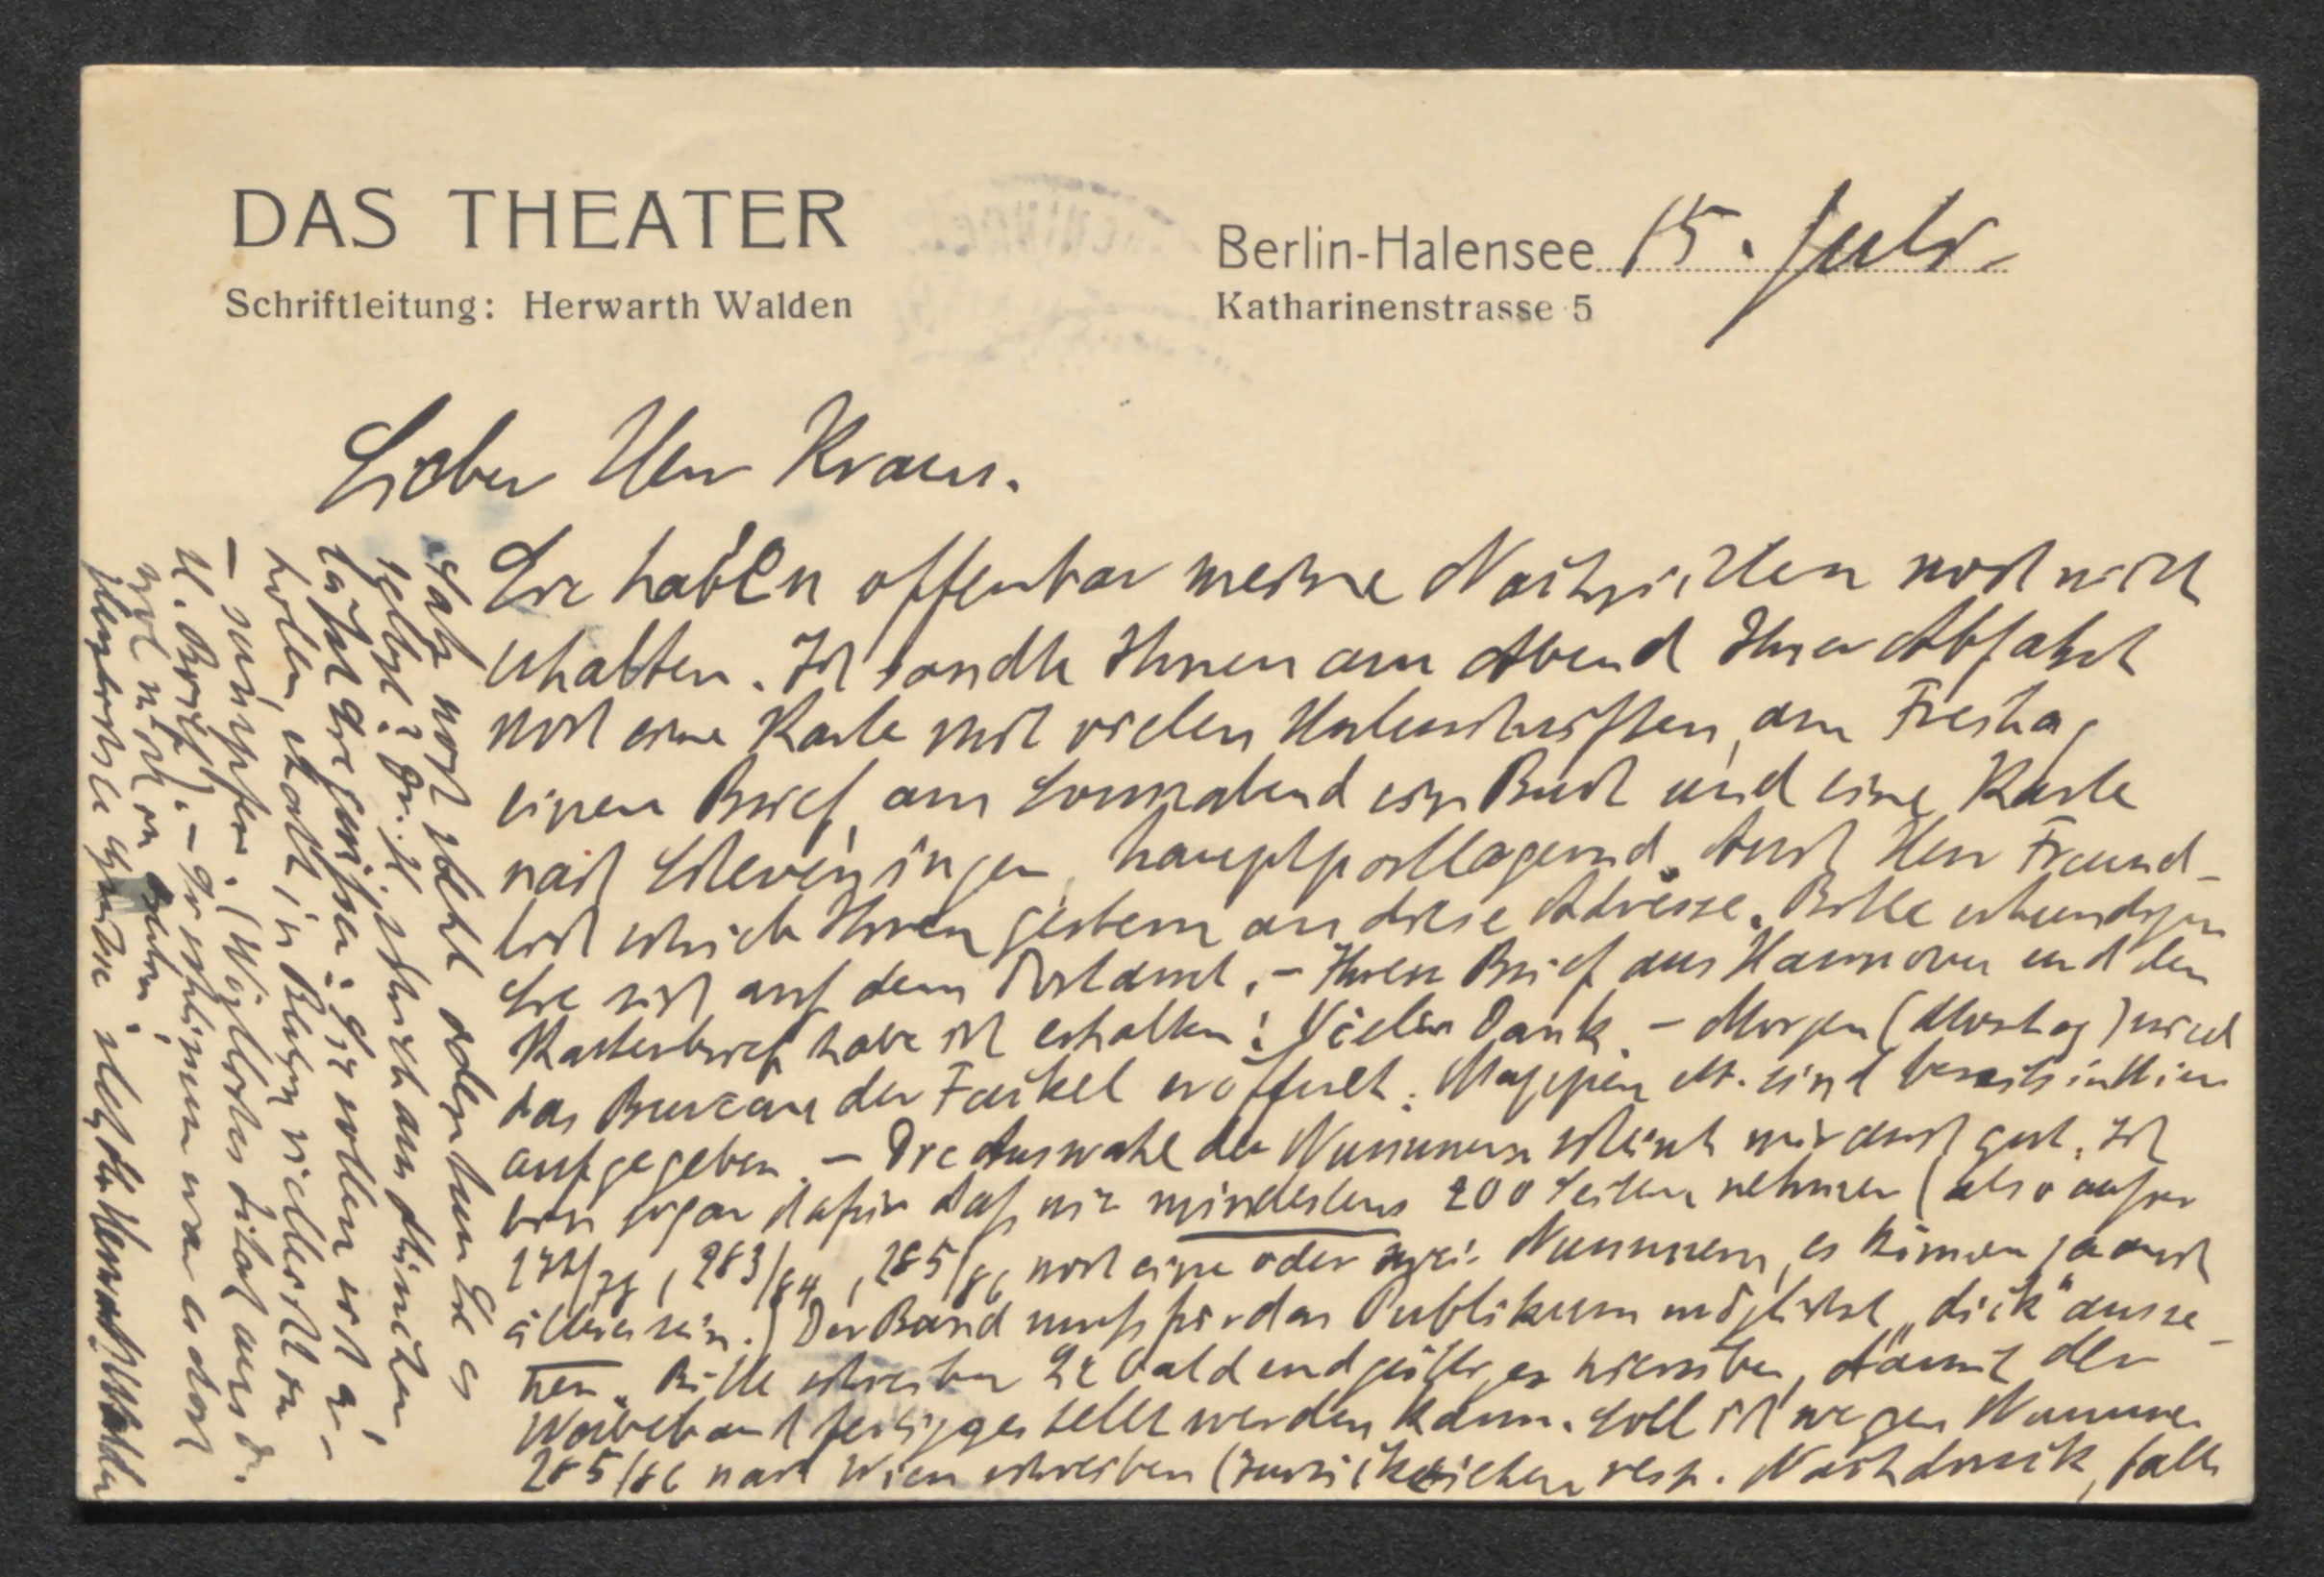 DAS THEATER
Schriftleitung: Herwarth Walden
Berlin-Halensee 15. Juli
Katharinenstrasse 5
Lieber Herr Kraus.
Sie haben offenbar meine Nachrichten noch nicht
erhalten. Ich sandte Ihnen am Abend Ihrer Abfahrt
noch eine Karte mit vielen Unterschriften, am Freitag
einen Brief, am Sonnabend ein Buch und eine Karte
nach Scheveningen, hauptpostlagernd. Auch Herr Freund-
lich schrieb Ihnen gestern an diese Adresse. Bitte erkundigen
Sie sich auf dem Postamt. – Ihren Brief aus Hannover und den
Kartenbrief habe ich erhalten: Vielen Dank. – Morgen (Montag) wird
das Bureau der Fackel eröffnet: Mappen etc. sind bereits in Wien
aufgegeben. – Die Auswahl der Nummern scheint mir auch gut. Ich
bin sogar dafür daß wir mindestens 200 Seiten nehmen (also außer
277/78, 283/84, 285/86 noch eine oder zwei Nummern, es können ja auch
ältere sein.) Der Band muß für das Publikum möglichst „dick“ ausse-
hen. Bitte schreiben Sie bald endgültiges hierüber, damit der
Werbeband fertiggestellt werden kann. Soll ich wegen Nummer
285/86 nach Wien schreiben (zurückziehen resp. Nachdruck, falls
noch oder tun Sie es
selbst? Brief schrieb aus München,
läßt Sie grüßen: Sie sollen erst
holen, statt in Berlin vielleicht zu
– schimpfen. (Wörtliches Zitat aus d.
. Brief). –
Herwarth Walden